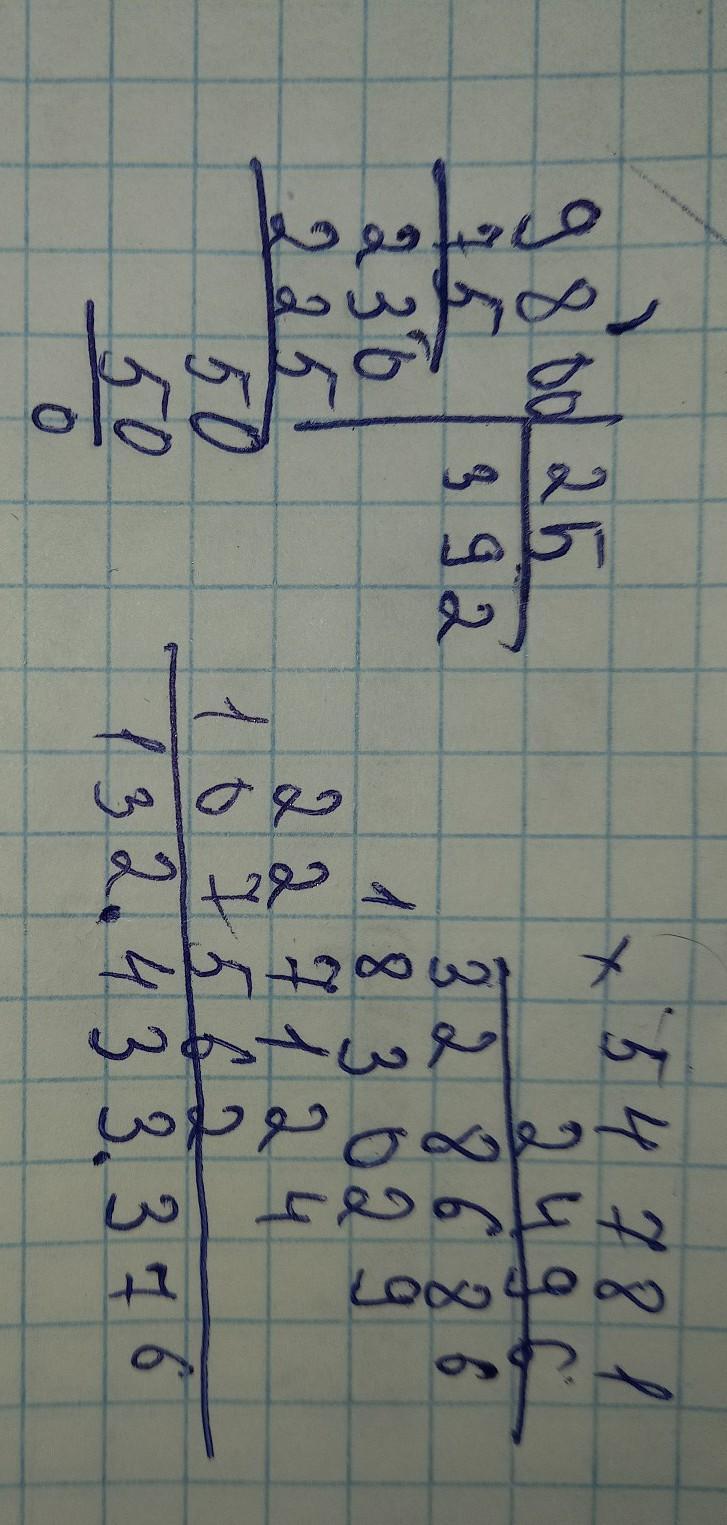 9800 25
75 392
230
225
50
50
0
× 54781
2496
328686
183029
227124
107562
132.433.376